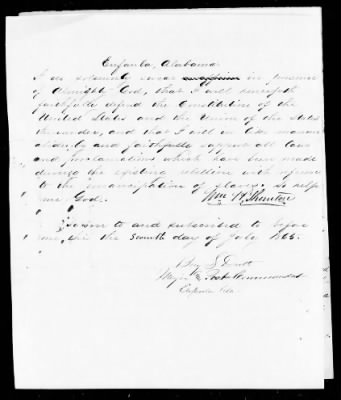 Eufaula, Alabama
I do solemnly swear or affirm in presence
of Almighty God, that I will henceforth
faithfully defend the Constitution of the
United States and the Union of the States
thereunder, and that I will in like manner
abide by and faithfully support all laws
and proclamations which have been made
during the existing rebellion with reference
to the emancipation of slaves. So help
me God. Wm H. Thornton
Sworn to and subscribed to before
me, this the seventh day of July 1865.
Major & Post Commandant
Eufaula Ala